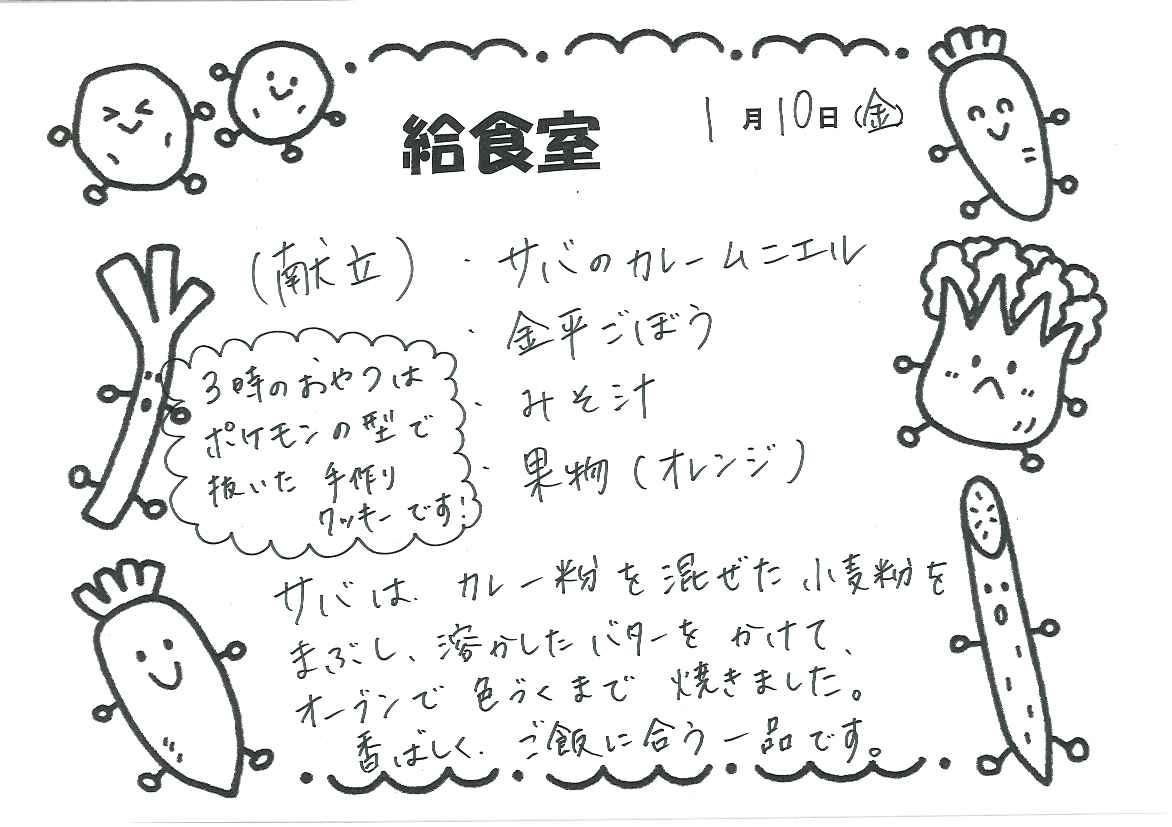 給食室
1月10日(金)
(献立)
・サバのカレームニエル
・金平ごぼう
・みそ汁
・果物(オレンジ)
3時のおやつは
ポケモンの型で
抜いた 手作り
クッキーです!
サバは、カレー粉を混ぜた小麦粉を
まぶし、溶かしたバターをかけて、
オーブンで色づくまで焼きました。
香ばしく、ご飯に合う一品です。